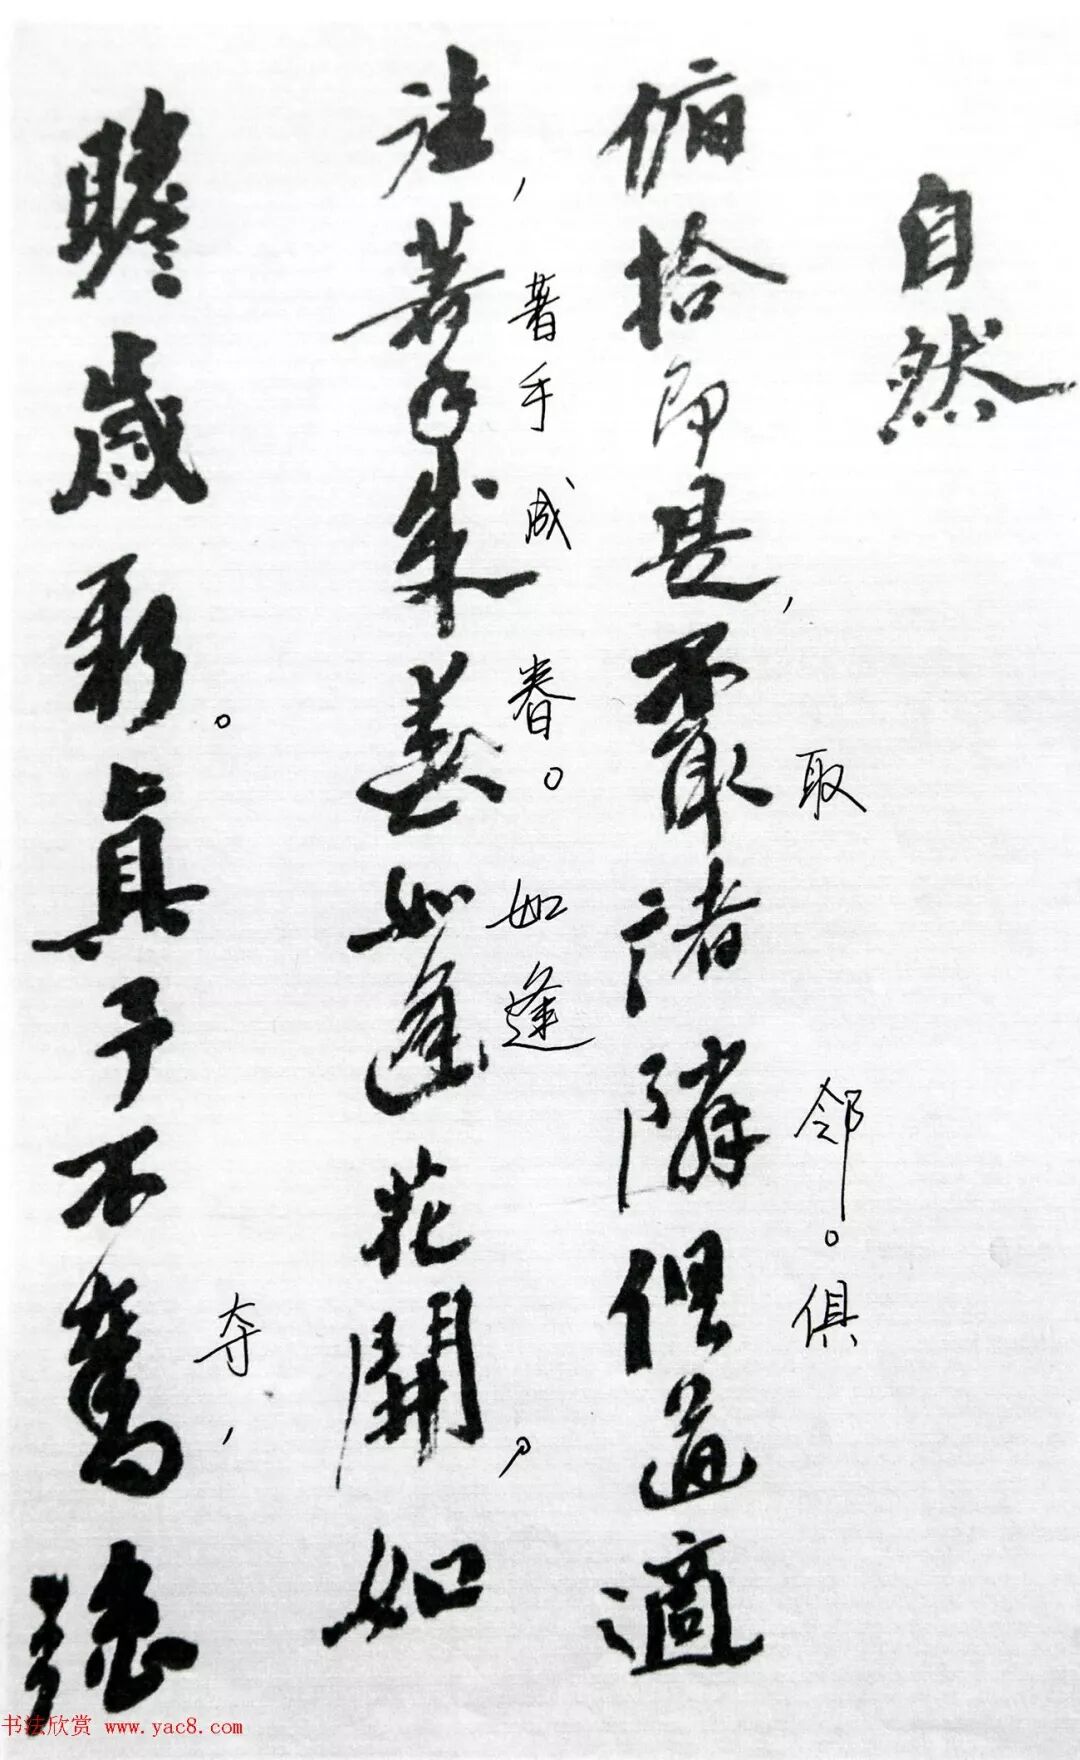 自然
取 邻。俱
俯拾即是,不取諸隣俱道適
著手成春。如逢
往,著手成春如逢花開,如
夺,
瞻歲新。眞予不奪強
书法欣赏 www.yac8.com